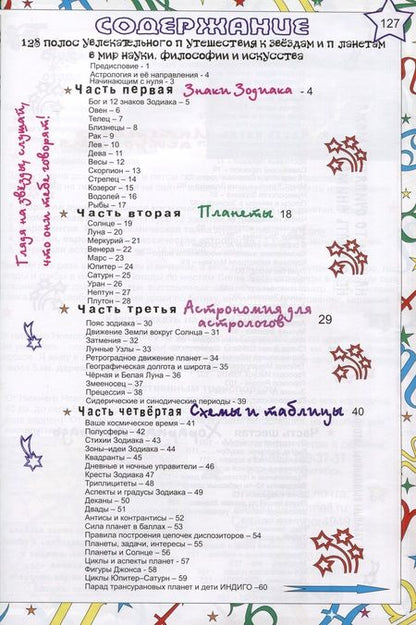 СОДЕРЖАНИЕ
127
128 полос увлекательного путешествия к звёздам и планетам
в мир науки, философии и искусства
Предисловие - 1
Астрология и её направления - 4
Начинающим с нуля - 3
Часть первая Знаки Зодиака - 4
Бог и 12 знаков Зодиака - 5
Овен – 6
Телец – 7
Близнецы – 8
Рак – 9
Лев – 10
Дева – 11
Весы – 12
Скорпион – 13
Стрелец – 14
Козерог – 15
Водолей – 16
Рыбы – 17
Глядя на звёзды, слушай,
что они тебе говорят!
Часть вторая Планеты 18
Солнце – 19
Луна – 20
Меркурий – 21
Венера – 22
Марс – 23
Юпитер – 24
Сатурн – 25
Уран – 26
Нептун – 27
Плутон – 28
Часть третья Астрономия для
астрологов 29
Пояс зодиака – 30
Движение Земли вокруг Солнца – 31
Затмения – 32
Лунные Узлы – 33
Ретроградное движение планет – 34
Географическая долгота и широта – 35
Чёрная и Белая Луна – 36
Змееносец – 37
Прецессия – 38
Сидерические и синодические периоды – 39
Часть четвёртая Схемы и таблицы 40
Ваше космическое время – 41
Полусферы – 42
Стихии Зодиака – 43
Зоны–идеи Зодиака – 44
Квадранты – 45
Дневные и ночные управители – 46
Кресты Зодиака - 47
Триплицитеты – 48
Аспекты и градусы Зодиака – 49
Деканы – 50
Двады – 51
Антисы и контрантисы – 52
Сила планет в баллах – 53
Правила построения цепочек диспозиторов – 54
Планеты, задачи, интересы – 55
Планеты и Солнце – 56
Циклы и аспекты планет - 57
Фигуры Джонса – 58
Циклы Юпитер–Сатурн – 59
Парад трансурановых планет и дети ИНДИГО –60